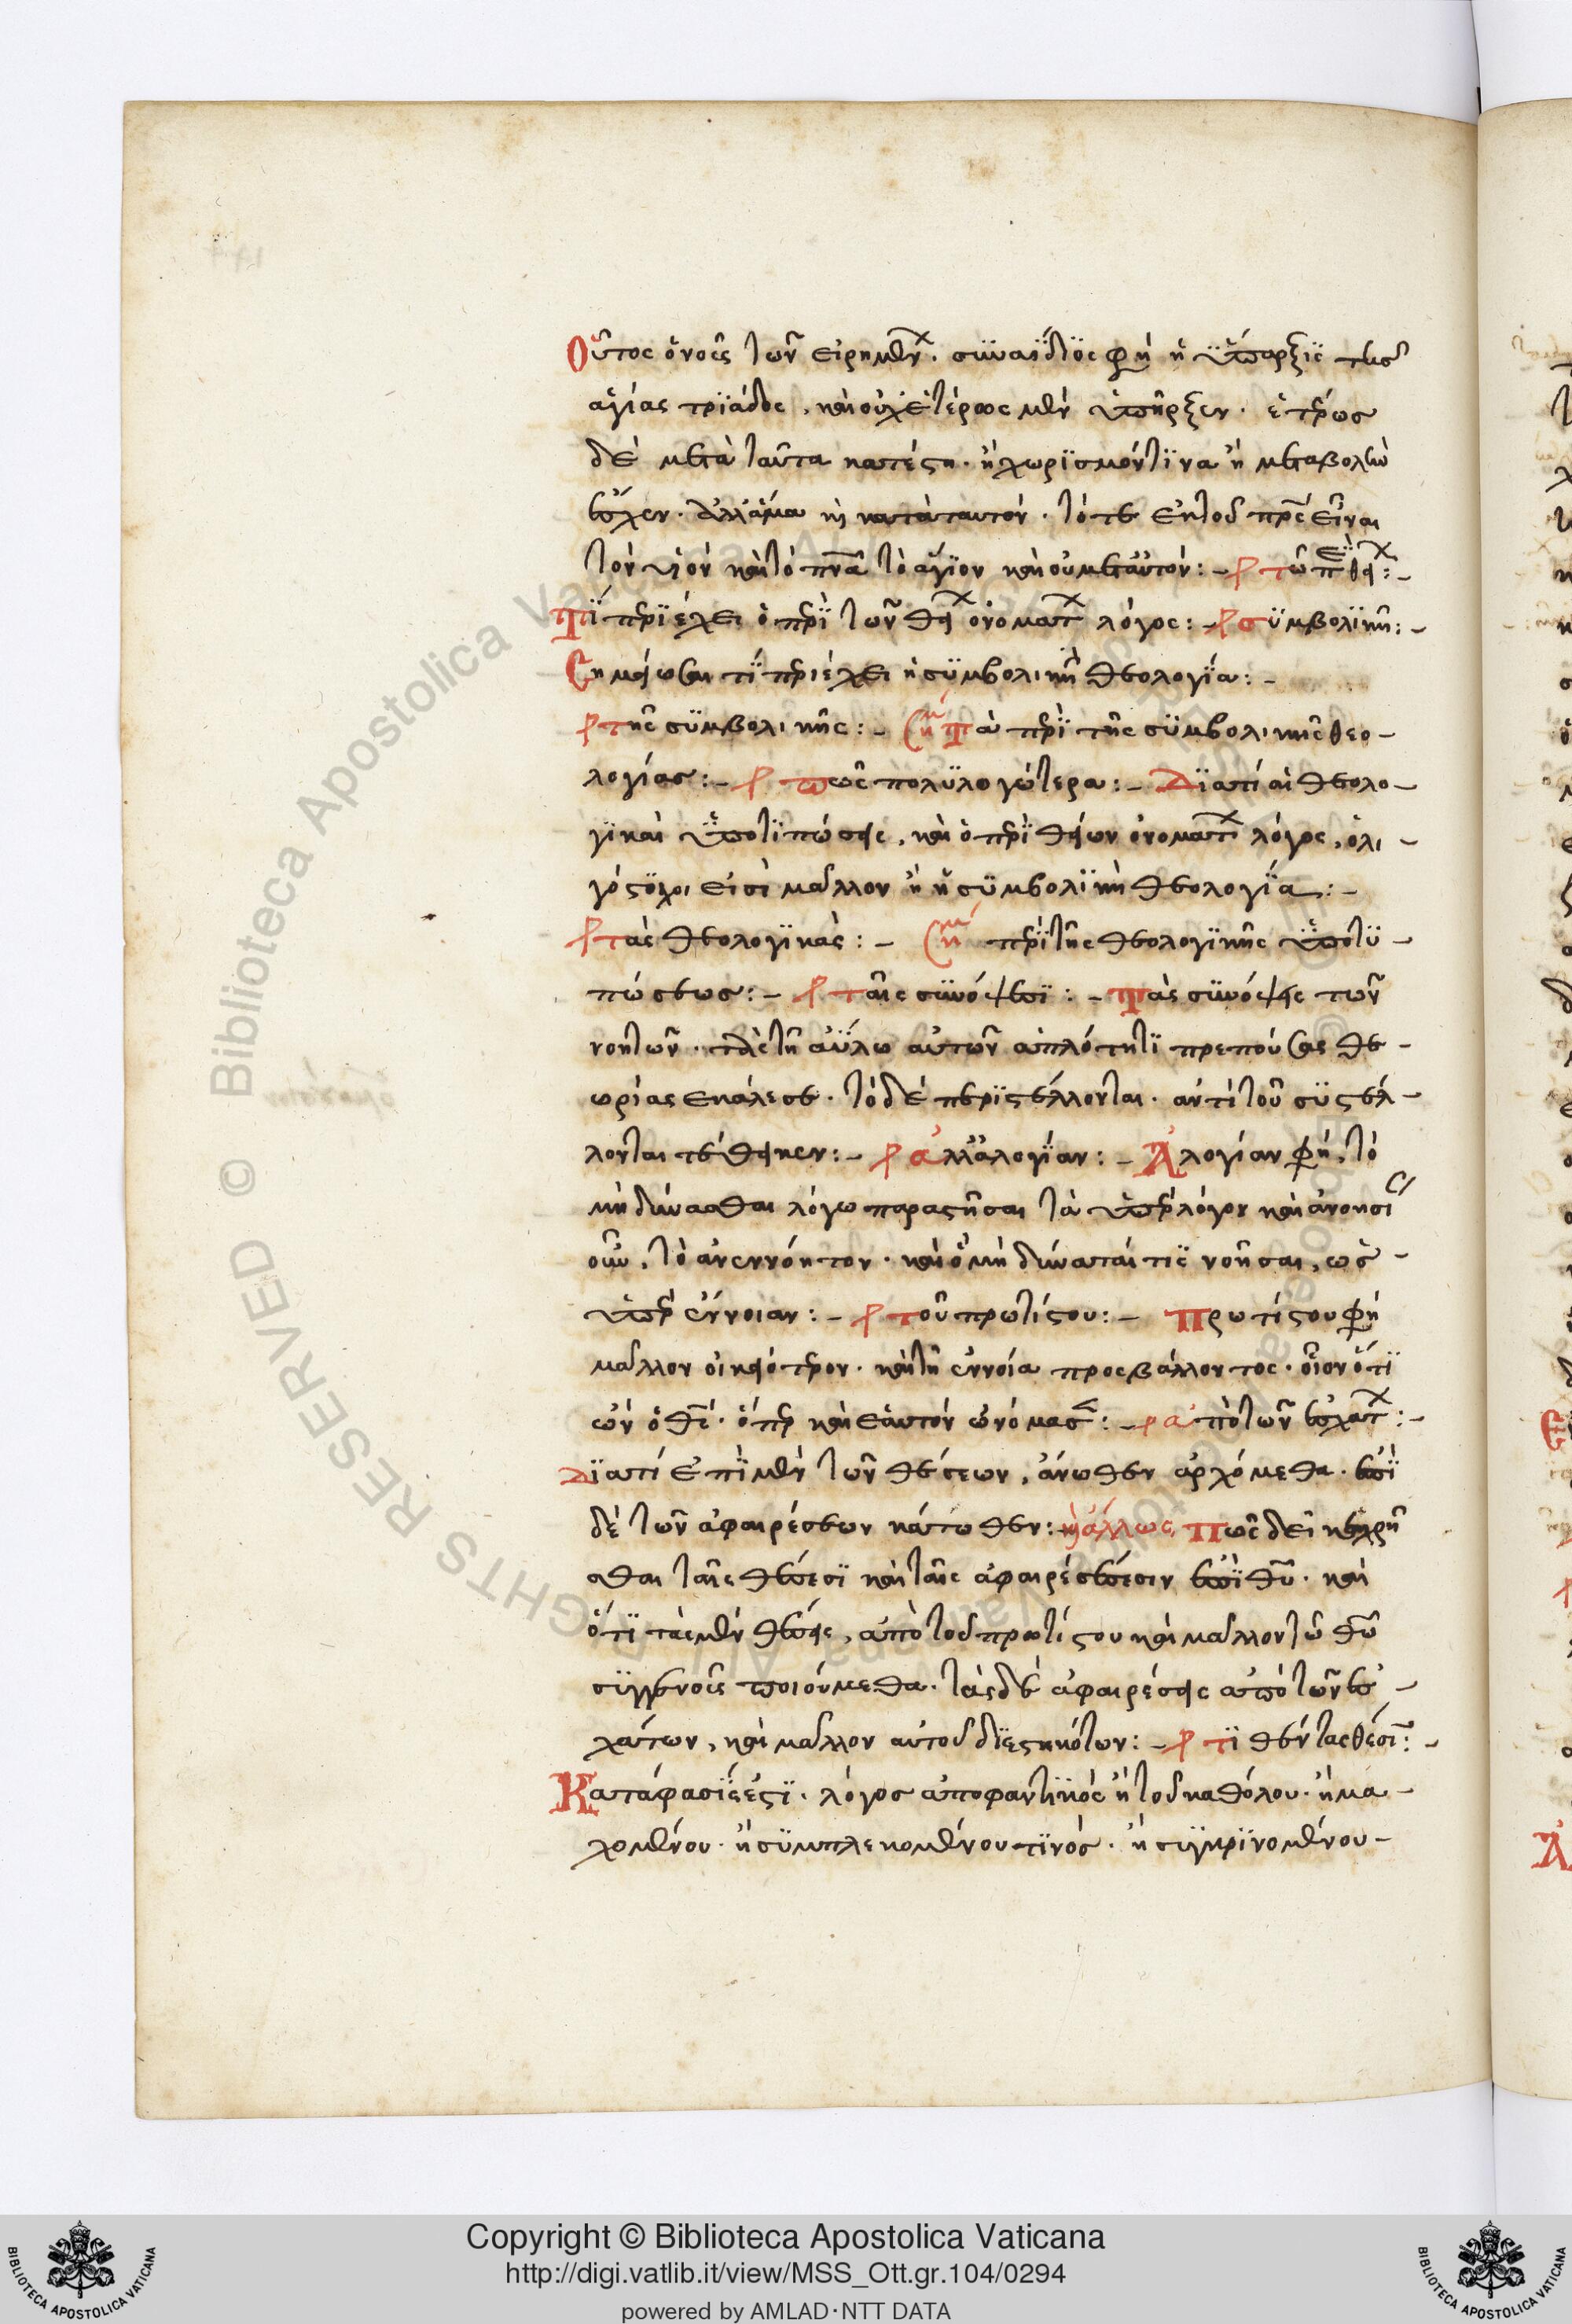 Οὗτος ὁ νοῦς τῶν εἰρημένων. συναΐδιος φη ἡ ὕπαρξις τῆς
ἁγίας τριάδος, καὶ οὐχ ἑτέρως μὲν ὑπῆρξεν. ἑτέρως
δὲ μετὰ ταῦτα κατέστη. ἢ χωρισμόν τινα ἢ μεταβολὴν
ἔσχεν. ἀλλ' ἅμα κ κατὰ ταυτὸν. τό τε ἐκ τοῦ πρς εἶναι
τὸν υἱὸν καὶ τὸ πνα τὸ ἅγιον καὶ οὐ μετ' αὐτόν:-
Τί περιέχει ὁ περὶ τῶν θείων ὀνομάτων λόγος:- συμβολικῆ:-
Σημείωσαι τί περιέχει ἡ συμβολικὴ θεολογία:-
της συμβολικῆς:- Ση Τὰ περὶ τῆς συμβολικῆς θεο-
λογίας:- πῶς πολυλογώτερα:- Διατί αἱ θεολο-
γικαὶ ὑποτυπώσεις, καὶ ὁ περὶ θείων ὀνομάτων λόγος, ὀλι-
γόστιχοι εἰσὶ μᾶλλον ἢ ἡ συμβολικὴ θεολογία:-
τὰς θεολογικὰς:- Ση περὶ τῆς θεολογικῆς ὑποτυ-
πώσεως:- ταῖς συνόψεσι:- Τὰς συνόψεις τῶν
νοητῶν. τὰς τῆ ἀΰλω αὐτῶν ἁπλότητι πρεπούσας θε-
ωρίας ἐκάλεσε. τὸ δὲ περιστέλλονται. ἀντὶ τοῦ συστέλ-
λονται τέθεικεν:- ἀλλ' ἀλογίαν:- Ἀλογίαν φη, τὸ
μὴ δύνασθαι λόγω παραστῆσαι τὰ ὑπὲρ λόγον καὶ ἀνοησί
αν, τὸ ἀνεννόητον. καὶ ὃ μὴ δύναταί τις νοῆσαι, ὡς
ὑπὲρ ἔννοιαν:- τοῦ πρωτίστου:- Πρωτίστου φη
μᾶλλον οἰκειότερον. καὶ τῆ ἐννοία προσβάλλοντος. οἷον ὅτι
ὤν ὁ θς. ὅπερ καὶ ἑαυτὸν ὠνόμασε:- ἀπὸ τῶν ἐσχάτων:-
Διατί ἐπὶ μὲν τῶν θέσεων, ἄνωθεν ἀρχόμεθα. ἐπὶ
δὲ τῶν ἀφαιρέσεων κάτωθεν: κ ἄλλως, Πῶς δεῖ κεχρῆ
σθαι ταῖς θέσεσι καὶ ταῖς ἀφαιρέσεσιν ἐπὶ θυ. καὶ
ὅτι τὰς μὲν θέσεις, ἀπὸ τοῦ πρωτίστου καὶ μᾶλλον τῶ θω
συγγενοῦς ποιούμεθα. τὰς δὲ ἀφαιρέσεις ἀπὸ τῶν ἐσ-
χάτων, καὶ μᾶλλον αὐτοῦ διεστηκότων:- τιθέντας θέσιν:-
Κατάφασίς ἐστι. λόγος ἀποφαντικὸς ἢ τοῦ καθόλου. ἢ μα-
χομένου. ἢ συμπλεκομένου τινός. ἢ συγκρινομένου-
Copyright © Biblioteca Apostolica Vaticana
http://digi.vatlib.it/view/MSS_Ott.gr.104/0294
powered by AMLAD·NTT DATA